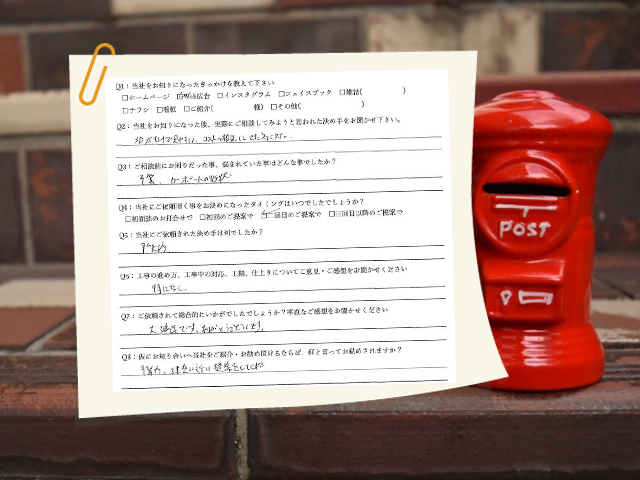 Q1：当社をお知りになったきっかけを教えて下さい
□ホームページ ☑Web広告 □インスタグラム □フェイスブック □雑誌( )
□チラシ □看板 □ご紹介( 様) □その他( )
Q2：当社をお知りになった後、実際にご相談してみようと思われた決め手をお聞かせ下さい。
Q3：ご相談前にお困りだった事、悩まれていた事はどんな事でしたか？
予算、カーポートの形状
Q4：当社にご依頼頂く事をお決めになったタイミングはいつでしたでしょうか？
□初面談のお打合せで □初回のご提案で ☑二回目のご提案で □三回目以降のご提案で
Q5：当社にご依頼された決め手は何でしたか？
予算内
Q6：工事の進め方、工事中の対応、工期、仕上りについてご意見・ご感想をお聞かせください
特になし
Q7：ご依頼されて総合的にいかがでしたでしょうか？率直なご感想をお聞かせください
大満足です。ありがとうございます。
Q8：仮にお知り合いへ当社をご紹介・お勧め頂けるならば、何と言ってお勧めされますか？
予算内、
POST